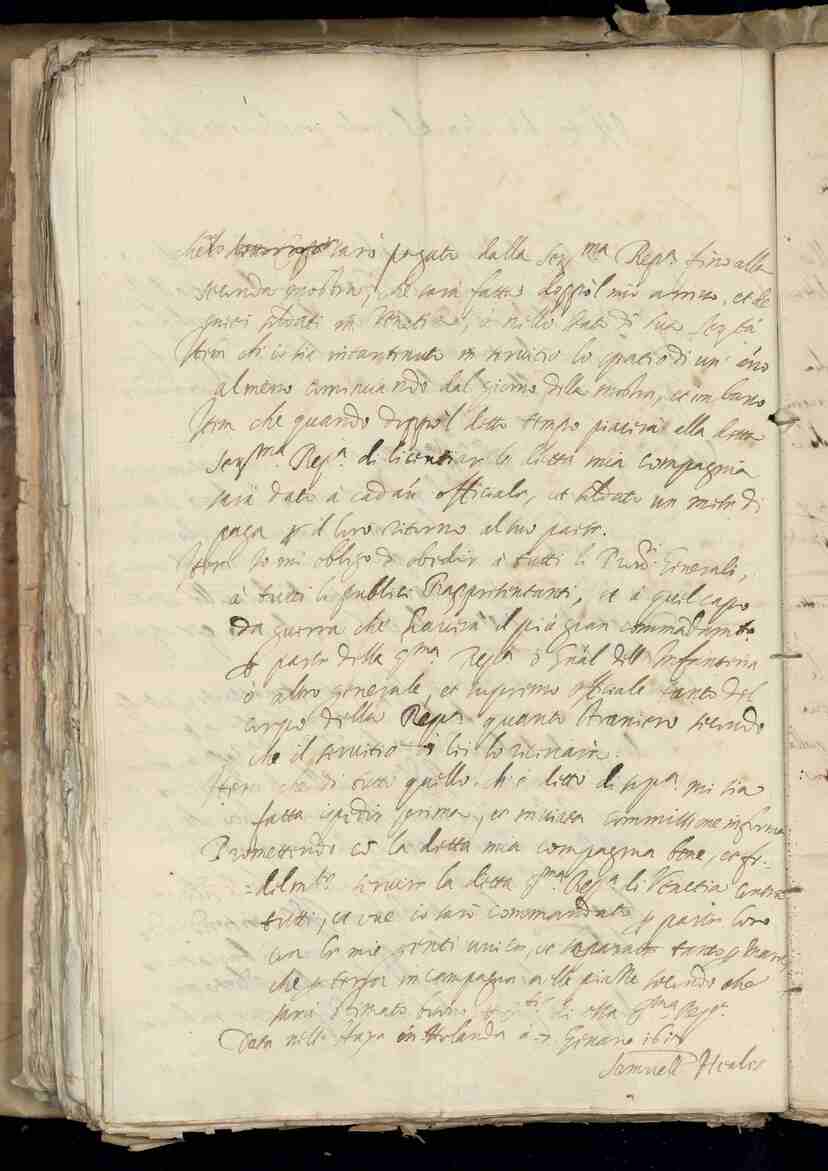 sarò pagato dalla Ser.ma Rep.a fino alla
seconda mostra, che sarà fatta doppò'l mio arrivo, et de
miei soldati in Venetia, ò nello stato di sua Ser.tà
Item ch'io sia intertenuto in servitio lo spatio di un' año
al meno cominciando dal giorno della mostra,
Item che quando doppò'l detto tempo piacerà alla detta
Ser.ma Rep.a di licentiar la detta mia compagnia
sarà dato à cadaũ officiale, et soldato un mese di
paga p il loro ritorno al suo paese.
Item Io mi obligo d'obedir à tutti li Generali,
à tutti li publici Rappresentanti, et à quel capo
da guerra che haverà il più gran commandam.to
p parte della Rep.a ò Gñal dell' Infanteria
ò altro generale, et supremo officiale tanto del
corpo della Rep.a quanto straniero secondo
che il servitio di lei lo ricercarà.
Item che di tutto quello ch'è detto di sop.a mi sia
fatta spedir commissione in forma
Promettendo cõ la detta mia compagnia bene, et fi-
delm.te servire la detta Rep.a di Venetia contra
tutti, et ove io sarò commandato p parte loro
con le mie genti unito, et separato tanto p mare,
che p terra in campagna ò nelle piazze secondo che
sarà stimato buono di essa Rep.a
Data nell' Haya in Holanda à 7 Genaro
Samuell